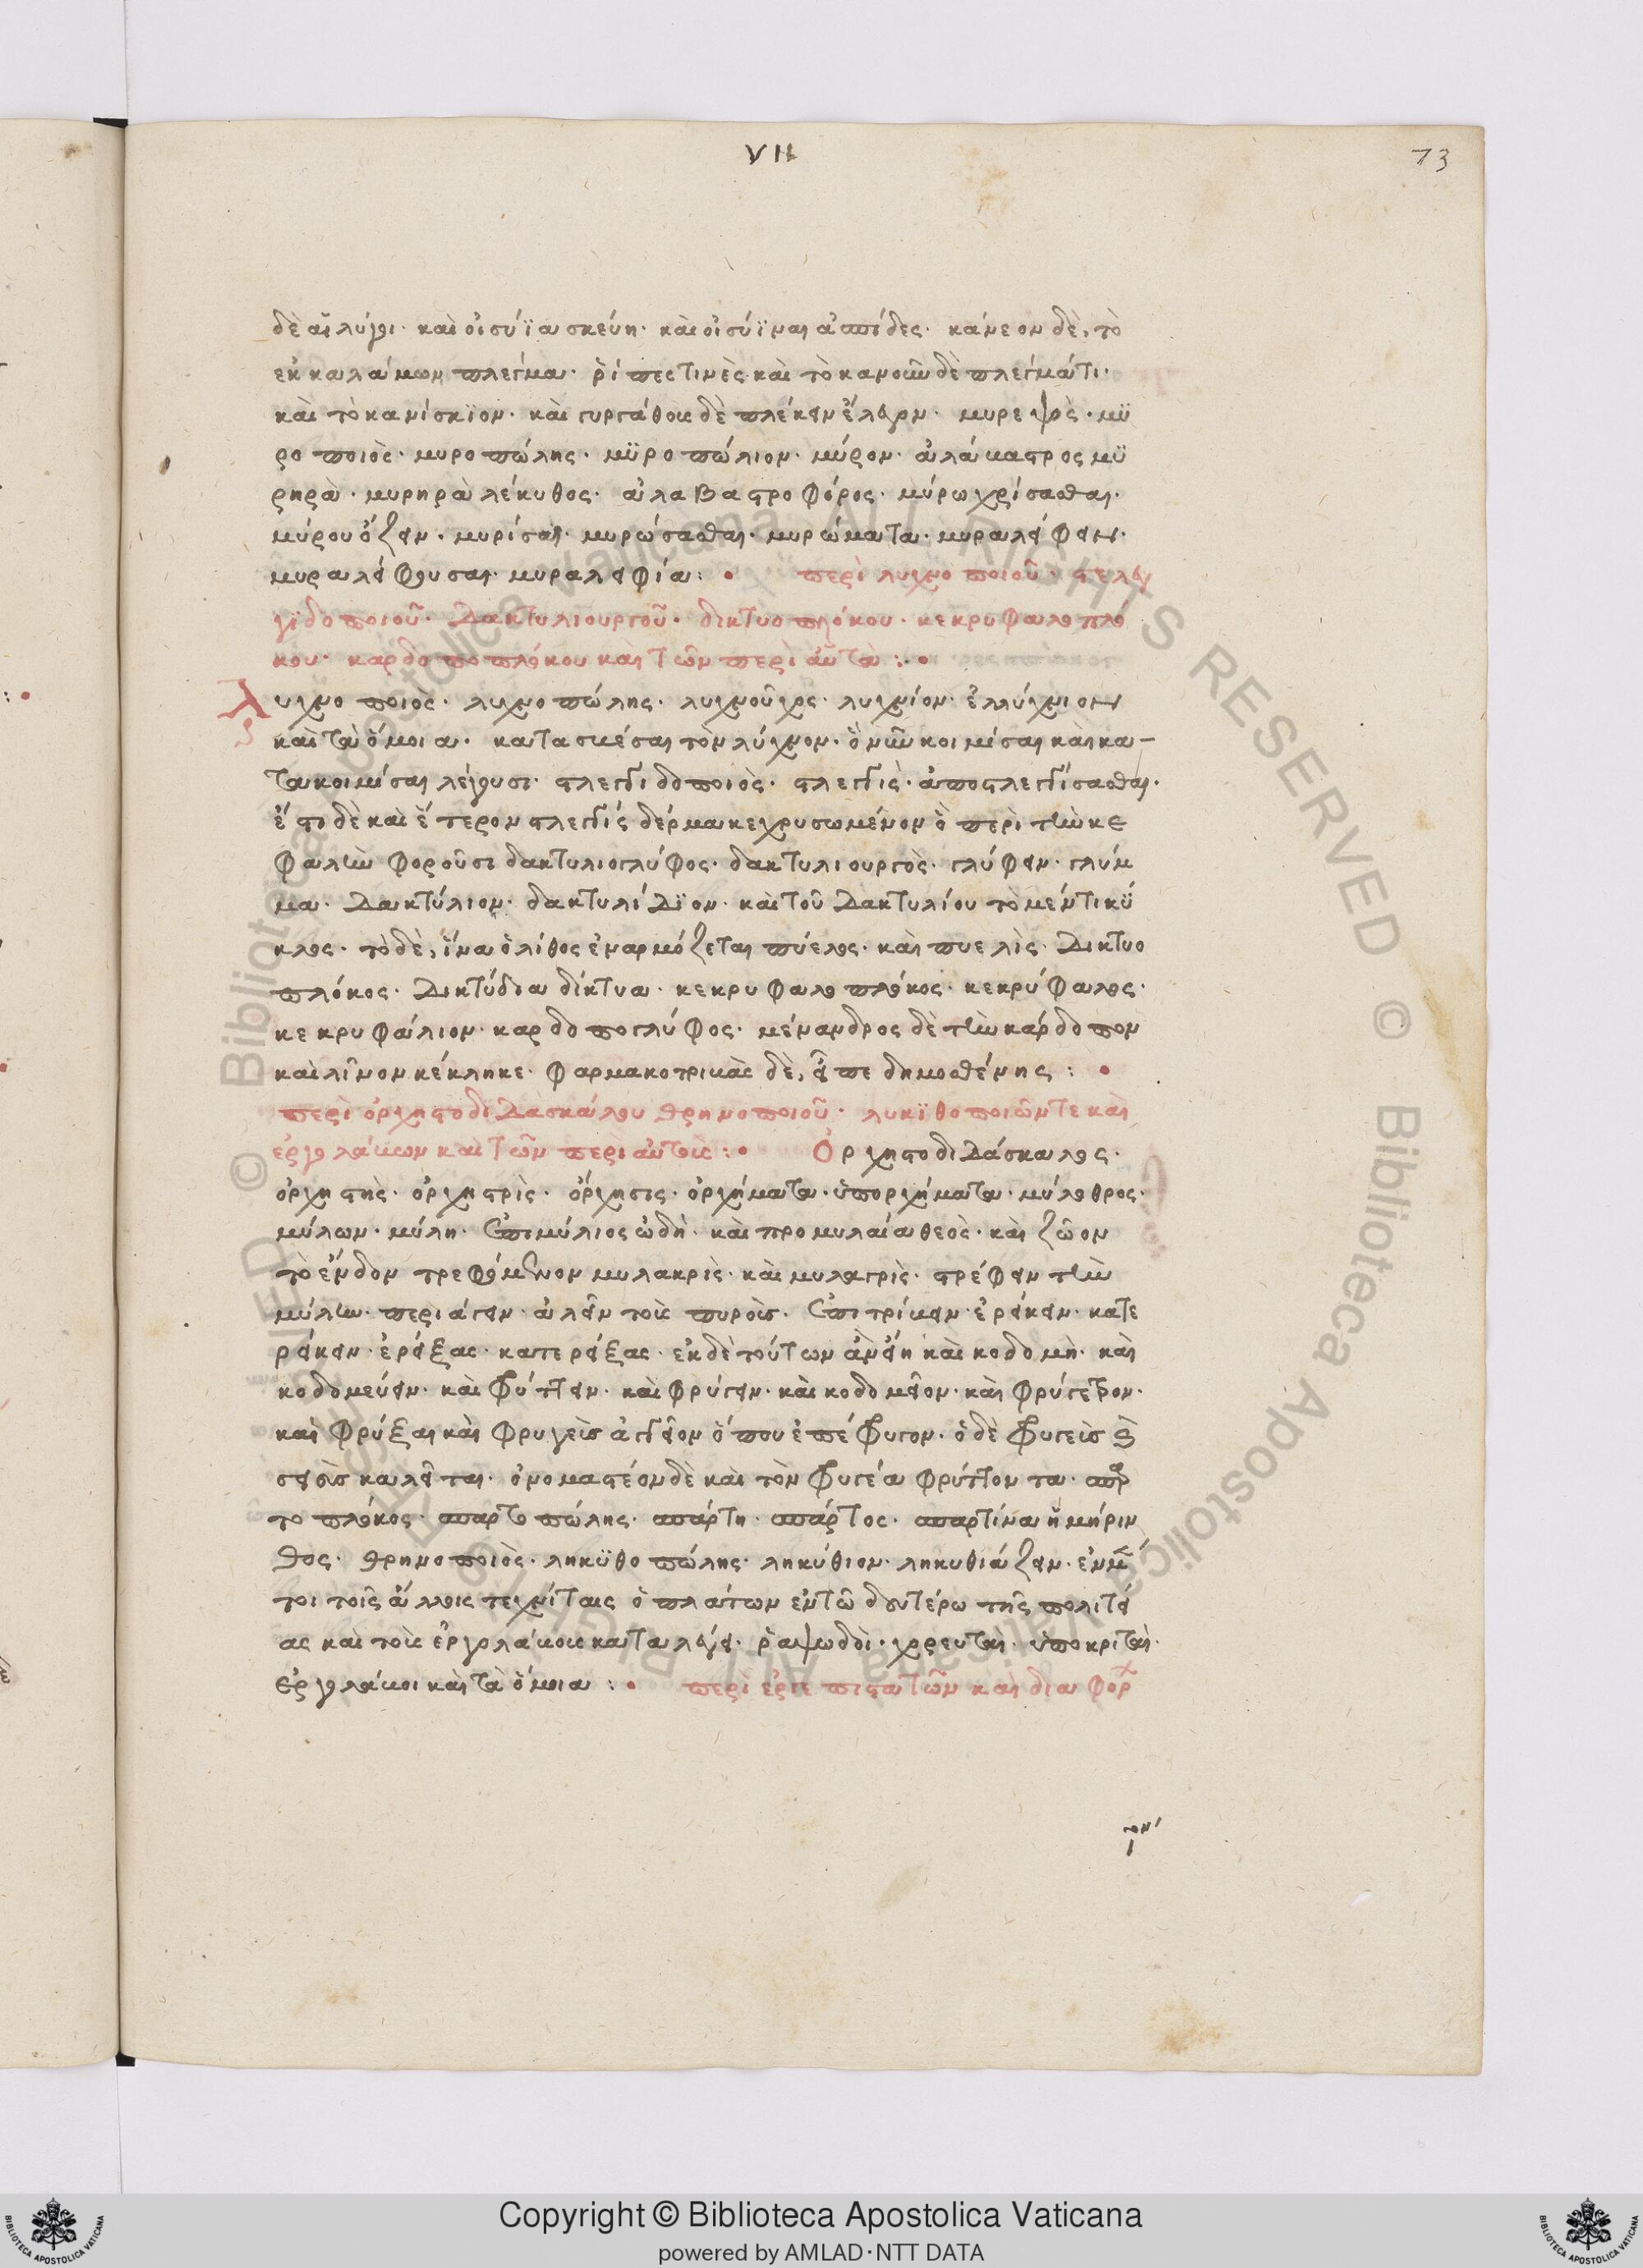 VII
73
δὲ αἱ λύγοι· καὶ οἰσύϊα σκεύη· καὶ οἰσύϊναι ἀσπίδες· κάνεον δὲ, τὸ
ἐκ καλάμων πλέγμα· ῥίπες τινὲς καὶ τὸ κανοῦν δὲ πλέγμά τι·
καὶ τὸ κανίσκϊον· καὶ γυργάθους δὲ πλέκειν ἔλεγον· μυρεψὸς· μϋ
ροποιὸς· μυροπώλης· μϋροπώλιον· μύρον· ἀλάβαστρος μϋ
ρηρὰ· μυρηρὰ λέκυθος· ἀλαβαστροφόρος· μύρω χρίσασθαι·
μύρου ὄζειν· μυρίσαι· μυρώσασθαι· μυρώματα· μυραλείφειν·
μυραλείφουσαι· μυραλειφία: • περὶ λυχνοποιοῦ· στελεγ
γϊδοποιοῦ· δακτυλιουργοῦ· δικτυοπλόκου· κεκρυφαλοπλό
κου· καρδοποπλόκου καὶ τῶν περὶ αὐτὰ: •
λυχνοποιὸς· λυχνοπώλης· λυχνοῦχος· λυχνίον· ἐλλύχνιον
καὶ τὰ ὅμοια· κατασβέσαι τὸν λύχνον· ὃ νῦν κοιμίσαι καὶ κα-
τακοιμίσαι λέγουσι· στλεγγιδοποιὸς· στλεγγὶς· ἀποστλεγγίσασθαι·
ἔστι δὲ καὶ ἕτερον στλεγγίς δέρμα κεχρυσωμένον ὃ περὶ τὴν κε
φαλὴν φοροῦσι δακτυλιογλύφος· δακτυλιουργὸς· γλύφειν· γλύμ
μα· δακτύλιον· δακτυλίδϊον· καὶ τοῦ δακτυλίου τὸ μέν τι κϋ
κλος· τὸ δὲ, ἵνα ὁ λίθος ἐναρμόζεται πύελος· καὶ πυελὶς· δικτυο
πλόκος· δικτύδια δίκτυα· κεκρυφαλοπλόκος· κεκρύφαλος·
κεκρυφάλιον· καρδοπογλύφος· μένανδρος δὲ τὴν κάρδοπον
καὶ λῖνον κέκληκε· φαρμακοτρίβας δὲ, εἶπε δημοσθένης: •
περὶ ὀρχηστοδιδασκάλου θρηνοποιοῦ· λυκϊθοποιῶν τε καὶ
ἐργολάβων καὶ τῶν περὶ αὐτοὺς: • Ὀρχηστοδιδάσκαλος·
ὀρχηστὴς· ὀρχηστρὶς· ὄρχησις· ὀρχήματα· ὑπορχήματα· μύλοθρος·
μύλων· μύλη· ἐπιμύλιος ὠδὴ· καὶ προμυλαία θεὸς· καὶ ζῶον
τὸ ἔνδον τρεφόμενον μυλακρὶς· καὶ μυλαγρὶς· στρέφειν τὴν
μύλην· περιάγειν· ἀλεῖν τοὺς πυροὺς· ἐπιτρίβειν· ἐρείκειν· κατε
ρείκειν· ἐρείξας· κατερείξας· ἐκ δὲ τούτων καὶ κοδομὴ· καὶ
κοδομεύειν· καὶ φρύττειν· καὶ φρύγειν· καὶ κοδομεῖον· καὶ φρύγετρον·
καὶ φρύξαι καὶ φρυγεὺς ἀγγεῖον ὅπου ἔφρυγον· ὁ δὲ φρυγεὺς
σεισὺς καλεῖται· ὀνομαστέον δὲ καὶ τὸν φρυγέα φρύττοντα· σπαρ
τοπλόκος· σπαρτοπώλης· σπάρτη· σπάρτος· σπαρτίνα ἢ μήριν
θος· θρηνοποιὸς· ληκϋθοπώλης· ληκύθιον· ληκυθιάζειν· ἐν μέν
τοι τοῖς ἄλλοις τεχνίταις ὁ πλάτων ἐν τῶ δευτέρω τῆς πολιτεί
ας καὶ τοὺς ἐργολάβους καταλέγει· ῥαψωδοὶ· χορευταὶ· ὑποκριταὶ·
ἐργολάβοι καὶ τὰ ὅμοια: • περὶ ἐργεπιστατῶν καὶ διαφόρ